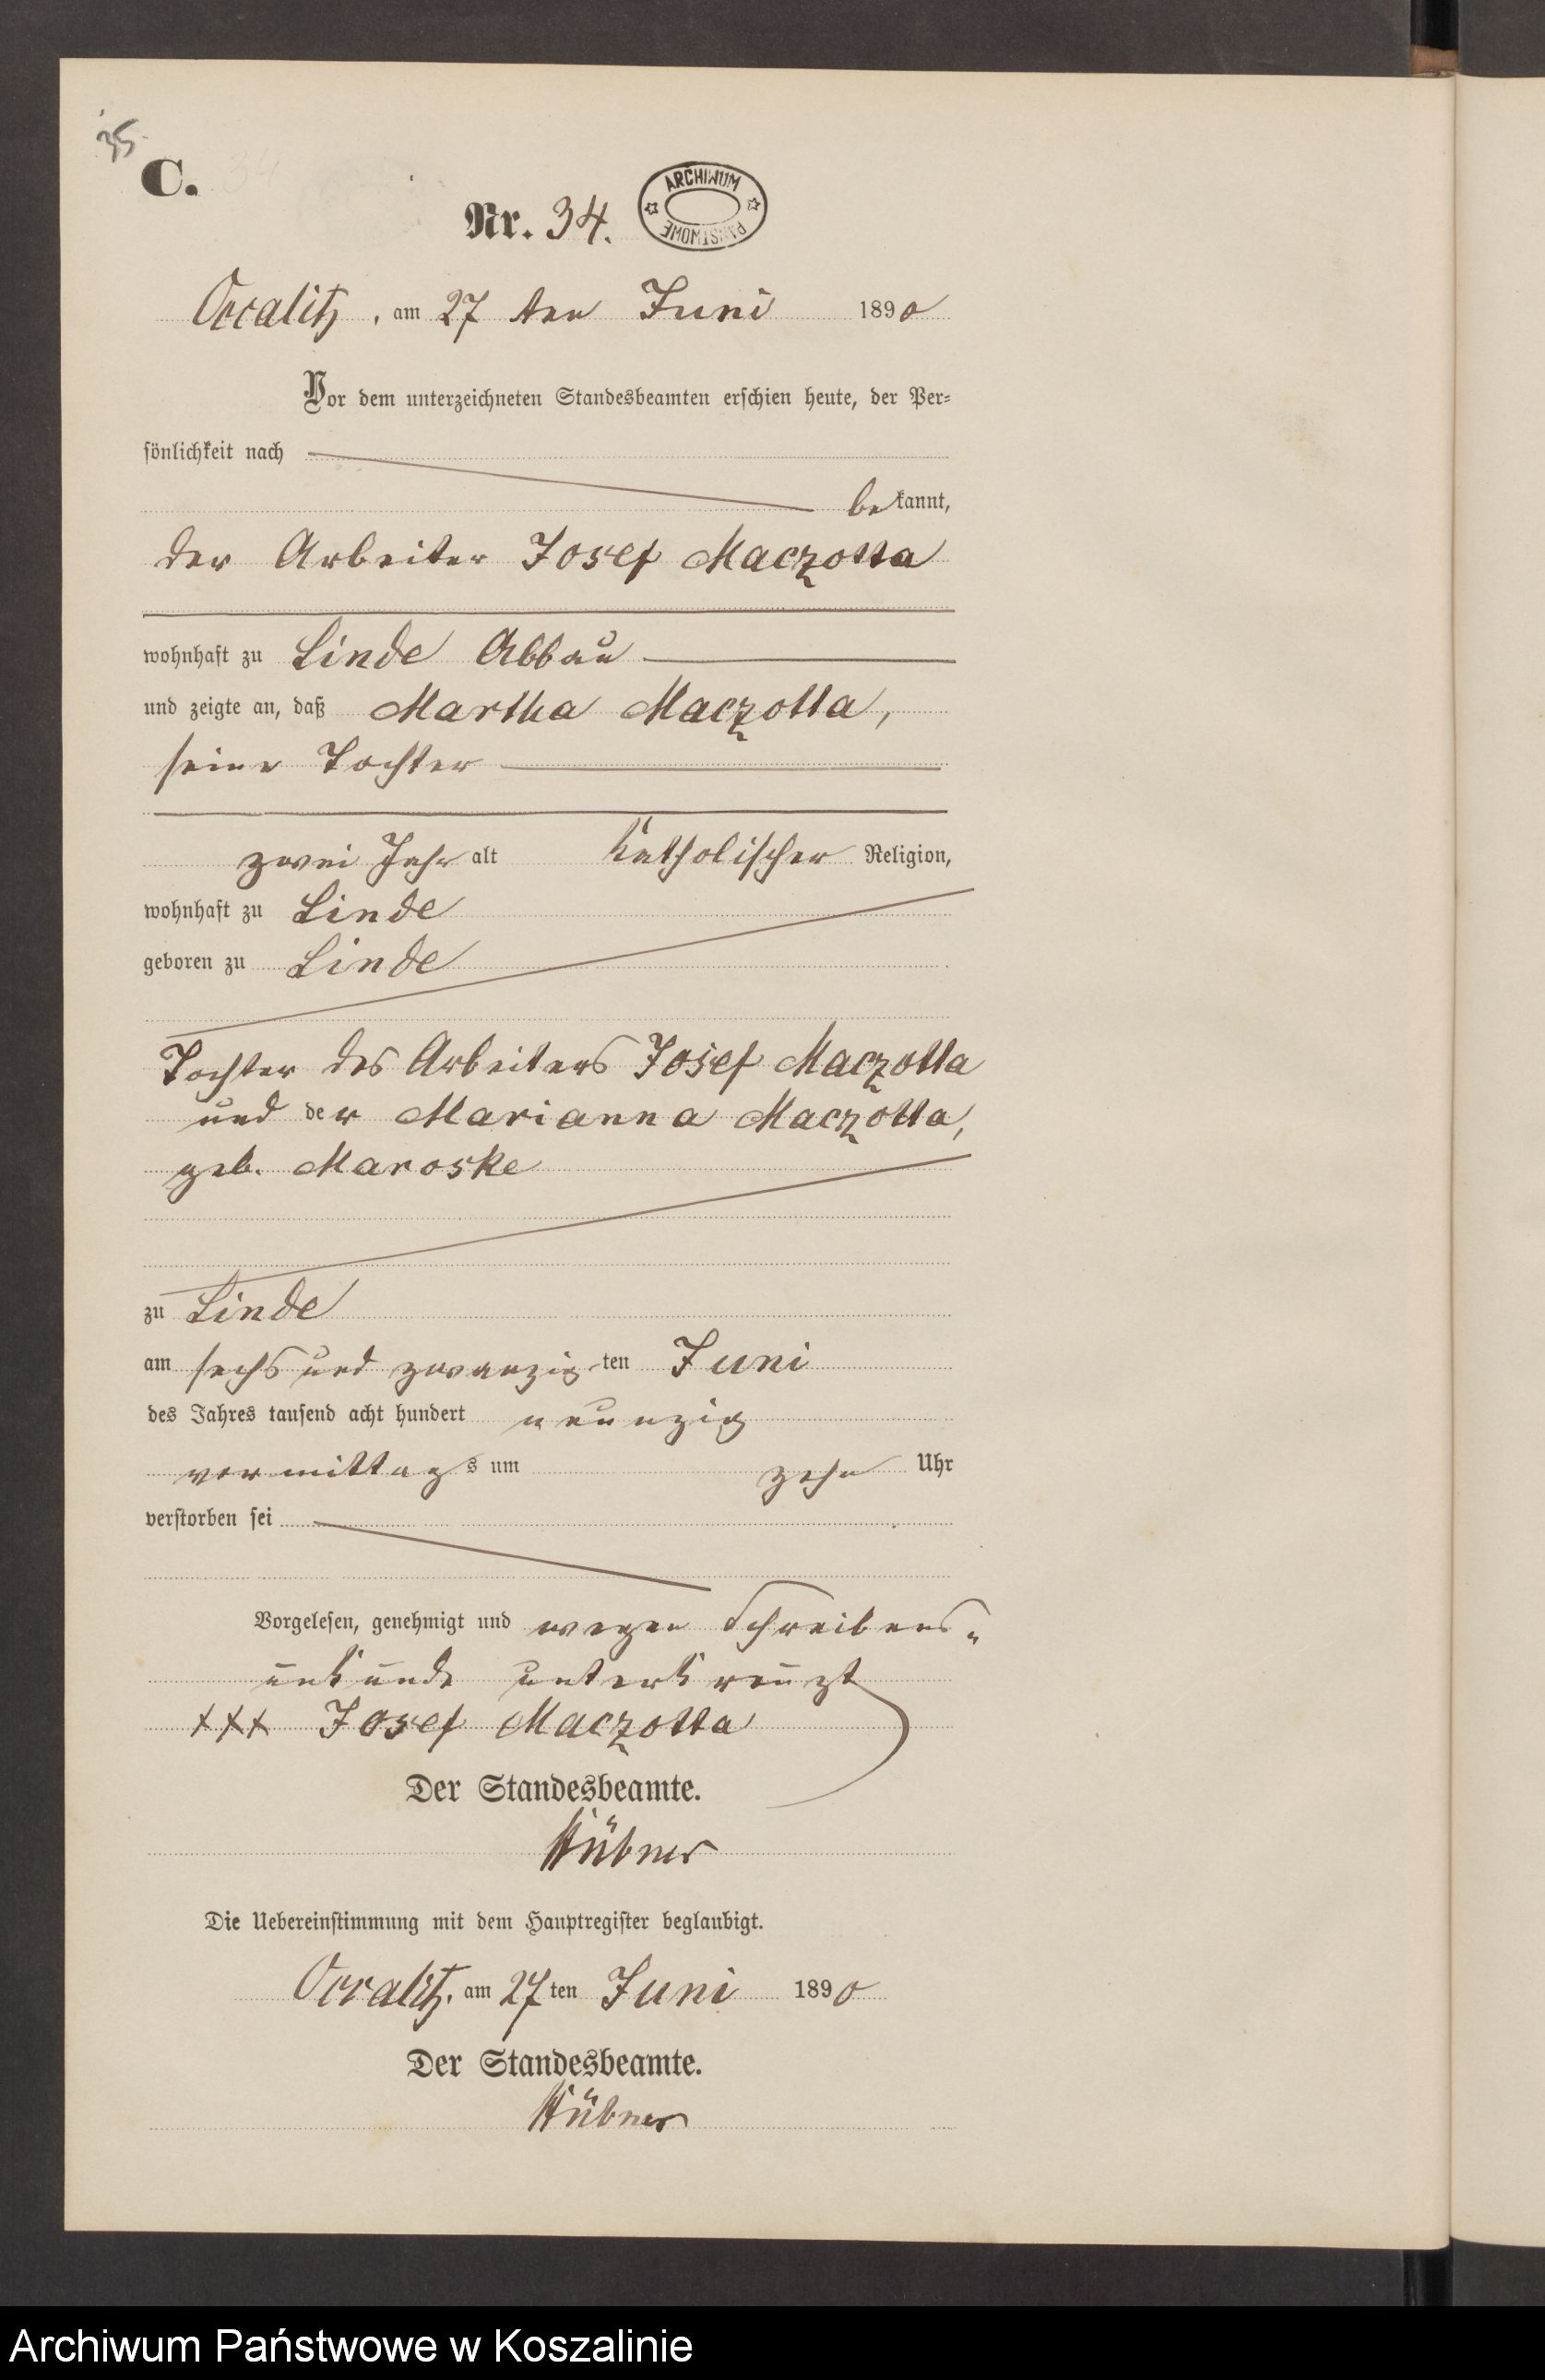 35
C.
Nr. 34.
ARCHIWUM PAŃSTWOWE
Occalitz, am 27 ten Juni 1890
Vor dem unterzeichneten Standesbeamten erschien heute, der Per-
sönlichkeit nach
bekannt,
der Arbeiter Josef Maczotta
wohnhaft zu Linde Abbau
und zeigte an, daß Martha Maczotta,
seine Tochter
zwei Jahr alt katholischer Religion,
wohnhaft zu Linde
geboren zu Linde
Tochter des Arbeiters Josef Maczotta
und der Marianna Maczotta,
geb. Maroske
zu Linde
am sechs und zwanzigten Juni
des Jahres tausend acht hundert neunzig
vormittags um zehn Uhr
verstorben sei
Vorgelesen, genehmigt und wegen Schreibens-
unkunde unterkreuzt
XXX Josef Maczotta
Der Standesbeamte.
Hübner
Die Uebereinstimmung mit dem Hauptregister beglaubigt.
Occalitz, am 27ten Juni 1890
Der Standesbeamte.
Hübner
Archiwum Państwowe w Koszalinie